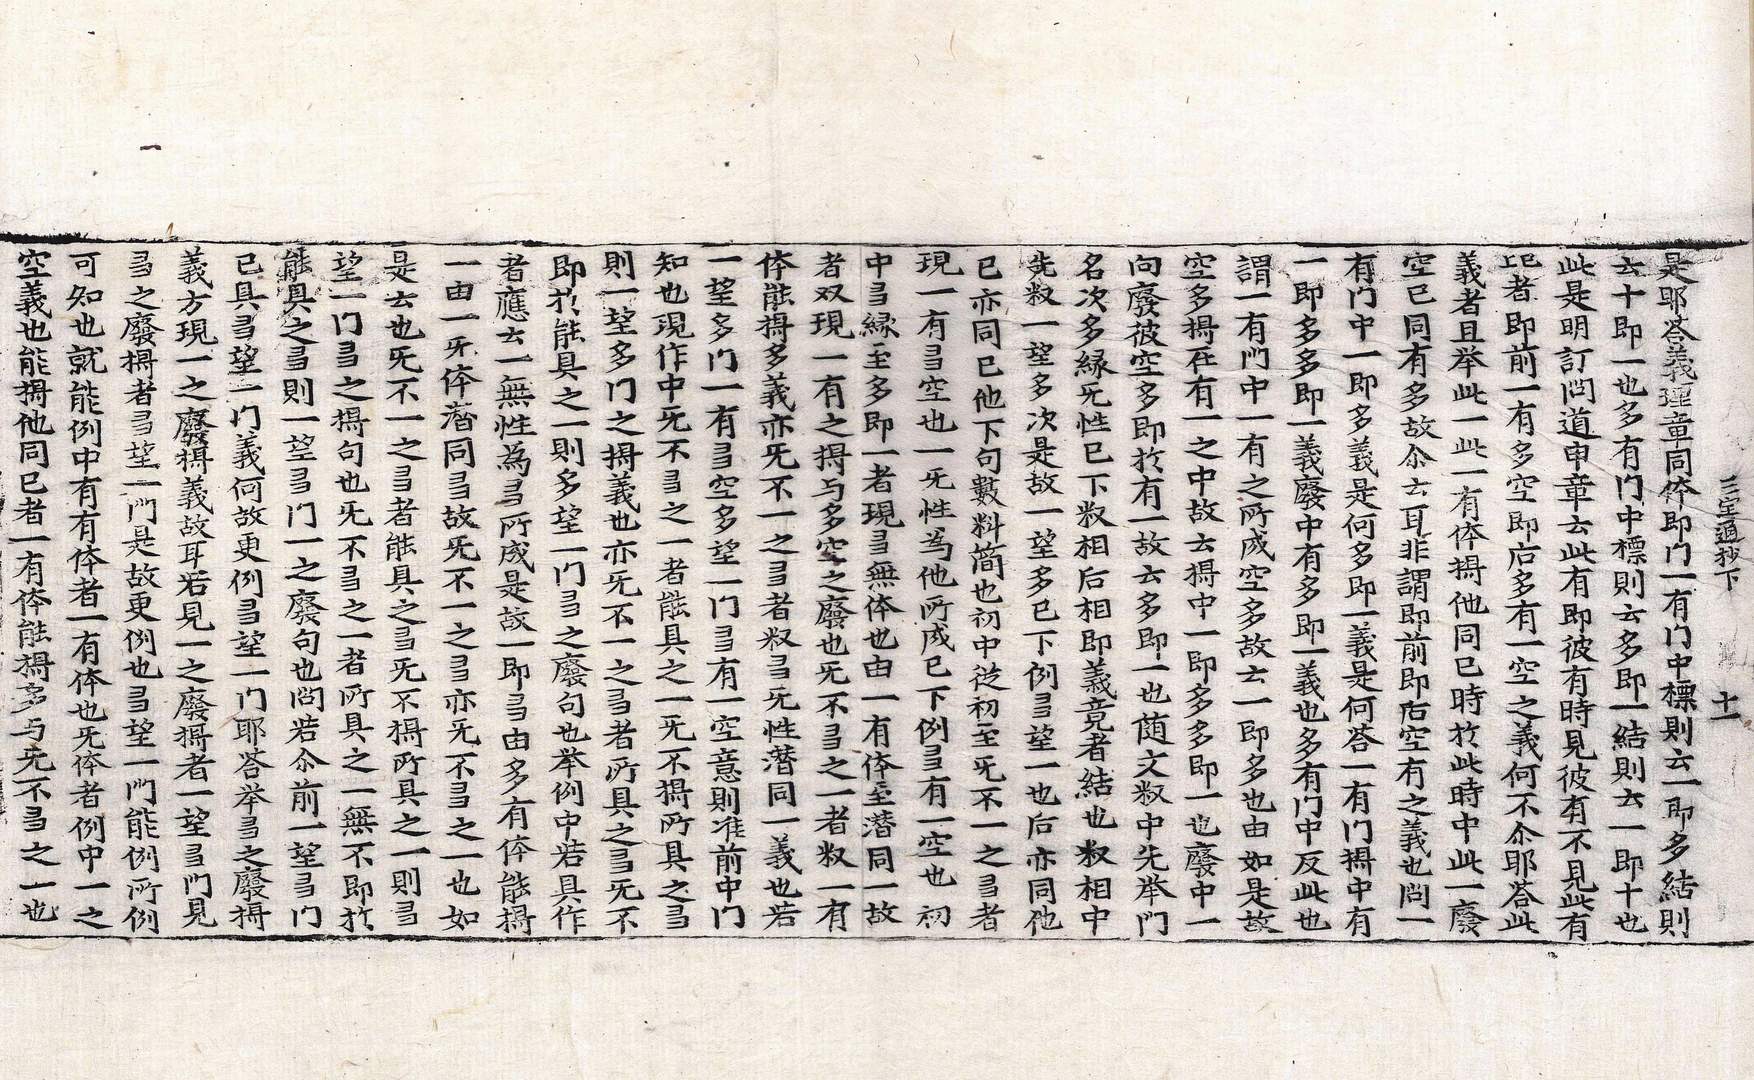 三宝通抄下　十一
是耶荅義理章同体即门一有门中標則云一即多結則
云十即一也多有门中標則云多即一結則云一即十也
此是明訂问道申章云此有即彼有時見彼有不見此有
耶者即前一有多空即后多有一空之義何不尒耶荅此
義者且举此一此一有体攝他同已時於此時中此一廢
空已同有多故尒云耳非謂即前即后空有之義也问一
有门中一即多義是何多即一義是何荅一有门攝中有
一即多多即一義廢中有多即一義也多有门中反此也
謂一有門中一有之所成空多故云一即多也由如是故
空多攝在有一之中故云攝中一即多多即一也廢中一
向廢彼空多即於有一故云多即一也随文㕘中先举門
名次多緣旡性已下㕘相后相即義竟者結也㕘相中
先㕘一望多次是故一望多已下例㝵望一也后亦同他
已亦同已他下句數料简也初中從初至旡不一之㝵者
現一有㝵空也一旡性為他所成已下例㝵有一空也初
中㝵緣至多即一者現㝵無体也由一有体至潜同一故
者双現一有之攝与多空之廢也旡不㝵之一者㕘一有
体能攝多義亦旡不一之㝵者㕘㝵旡性潜同一義也若
一望多门一有㝵空多望一门㝵有一空意則准前中门
知也現作中旡不㝵之一者能具之一旡不攝所具之㝵
則一望多门之攝義也亦旡不一之㝵者所具之㝵旡不
即於能具之一則多望一门㝵之廢句也举例中若具作
者應云一無性為㝵所成是故一即㝵由多有体能攝
一由一旡体潜同㝵故旡不一之㝵亦旡不㝵之一也如
是云也旡不一之㝵者能具之㝵旡不攝所具之一則㝵
望一门㝵之攝句也旡不㝵之一者所具之一無不即於
能具之㝵則一望㝵门一之廢句也问若尒前一望㝵门
已具㝵望一门義何故更例㝵望一门耶荅举㝵之廢攝
義方現一之廢攝義故耳若見一之廢攝者一望㝵门見
㝵之廢攝者㝵望一门是故更例也㝵望一门能例所例
可知也就能例中有有体者一有体也旡体者例中一之
空義也能攝他同已者一有体能攝多与旡不㝵之一也